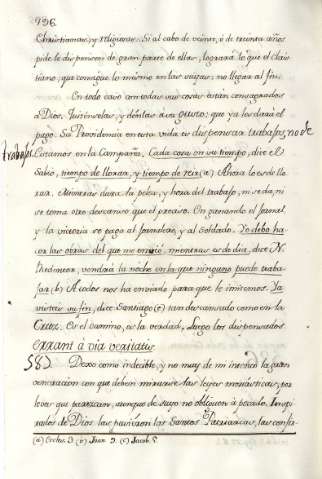 196.
Christianas, y religiosas. Si al cabo de veinte, ò de treinta años
pide le dispensen de gran parte de ellas, logrará lo que el claus-
trano, que consigue lo mismo en las suyas; no llegar al fin.
En todo caso con todas sus cosas están consagrados
à Dios. Juzguelas, y dénlas à su gusto; que ya les dará el
pago. Su Providencia en esta vida es dispensar trabajos, no de
trabajos.
Estamos en la Campaña. Cada cosa en su tiempo, dice el
Sabio, tiempo de llorar, y tiempo de reir. (a) Ahora lo es de llo-
rar. Mientras dura la pelea, y hora del trabajo, ni se da, ni
se toma otro descanso que el preciso. En ganando el jornal,
y la victoria se paga al jornalero, y al Soldado. Yo debo ha-
cer las obras del que me envió, mientras es de dia, dice N.
Redentor, vendrá la noche en la que ninguno puede traba-
jar. (b) A todos nos ha enviado para que le imitemos. Ya
visteis su fin, dice Santiago (c) tan descansado como en la
Cruz. Es el camino, es la verdad, luego los dispensados
errant à via veritatis
58). Dexo como indecible, y no muy de mi intento la gran
veneracion con que deben mirarse las leyes monásticas, por
leves que parezcan, aunque de suyo no obliguen à pecado. Inspi-
rados de Dios, las pusieron los Santos Patriarcas, las confir-
(a) Eccles. 3. (b) Joan. 9. (c) Jacob. 5.